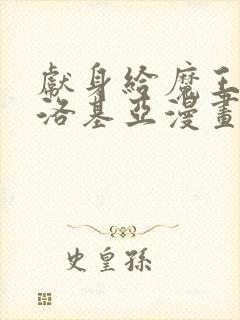 獻身給魔王
洛基亞漫畫
史皇孫